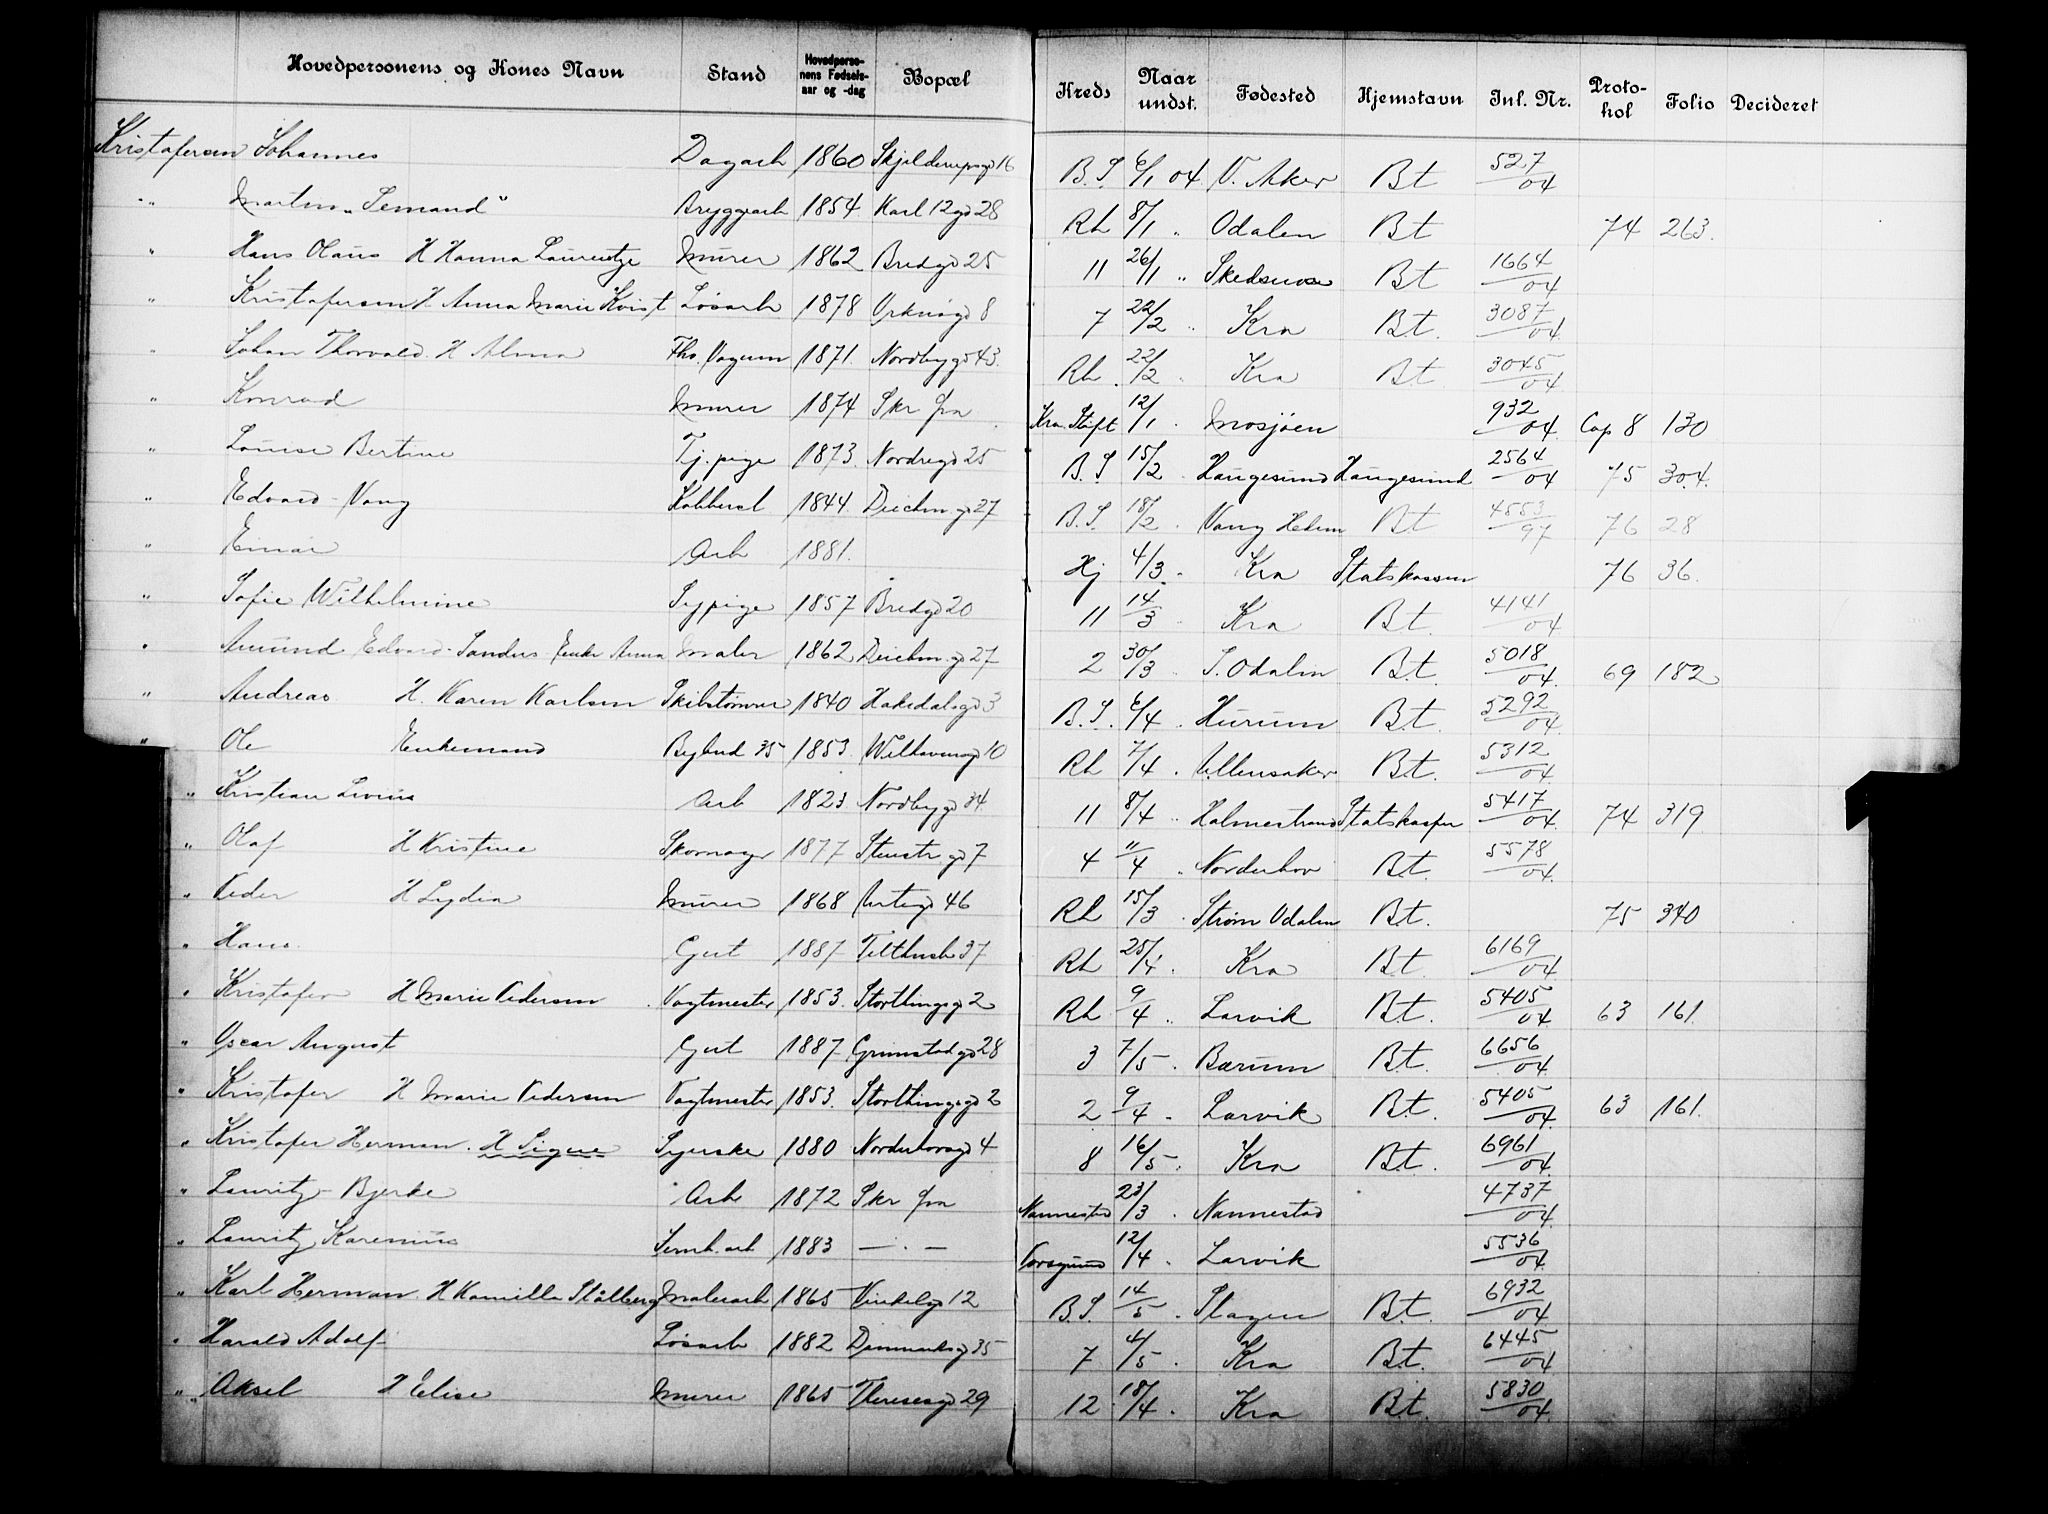 Hovedpersonens og Kones Navn Stand Hovedpersonens Fødselsaar og -dag Bopæl Kreds Naar undst. Fødested Hjemstavn Inl. Nr. Protokol Folio Decideret
Kristofersen Johannes Dagarb 1860 Skjelderupsgd 16 B.S. 6/1 04 V. Aker Bt 527/04
" Martin "Semand" Bryggearb 1854 Karl 12gd 28 Rh 8/1 " Odalen Bt 74 263.
" Hans Olaus H Hanna Laurentze Murer 1862 Bredgd 25 11 26/1 " Skedsmo Bt 1664/04
" Kristofersen H. Anna Marie Kvist Løsarb 1878 Orknøgd 8 7 22/2 " Kra Bt. 3087/04
" Johan Thorvald. H Alma Fhv. Vognm 1871. Nordbygd 43. Rh. 22/2 " Kra Bt. 3045/04
" Konrad Murer 1874 Skr fra Kra. Stift 12/1 . Mosjøen 932/04 Cop 8 130
" Louise Bertine Tj. pige 1873. Nordregd 25 B.S 15/2 . Haugesund Haugesund 2564/04 75 304.
" Edvard - Vang Kobbersl 1844. Deichm. gd 27 B.S. 18/2 . Vang Hedm Bt 4553/97 76 28
" Einar Arb 1881. Hj 4/3 . Kra Statskassen 76 36.
" Sofie Wilhelmine Sypige 1857 Bredgd 20 11 14/3 Kra Bt. 4141/04
" Amund Edvard - Sandus Enke Anna Maler 1862 Deichm. gd 27 2 30/3 . S. Odalen Bt. 5018/04. 69 182
" Andreas H. Karen Karlsen Skibstømrer 1840 Hakedalsgd 3 B.S. 6/4 . Hurum Bt. 5292/04.
" Ole Enkemand Bybud 35 1853. Wilh gd 10 Rh 7/4 . Ullensaker Bt. 5312/04
" Kristian Livius Arb 1823 Nordbygd 34 11 8/4 " Holmestrand Statskassen 5417/04. 74 319
" Olaf H Kristine Skomager 1877 Stenstr. gd 7 4 11/4 . Norderhov Bt. 5578/04.
" Peder H Lydia Murer 1868 Urtegd 46 Rh 15/3 . Strøm Odalen Bt. 75 340
" Hans Gjert 1887 Telthusb 37 Rh 25/4 . Kra Bt. 6169/04
" Kristofer H Marie Pedersen Vagtmester 1853. Storthingsgd 2 Rh 9/4 " Larvik Bt. 5405/04 63 161.
" Oscar August Gjert 1887 Grimstadgd 28 3 7/5 . Bærum Bt. 6656/04.
" Kristofer H Marie Pedersen Vagtmester 1853. Storthingsgd 2 2 9/4 . Larvik Bt. 5405/04. 63 161.
" Kristofer Herman. H Signe Syerske 1880 Norderhovsgd 4 8 16/5 . Kra Bt. 6961/04.
" Lauritz - Bjerke Arb 1872 Skr fra Nannestad 23/3 . Nannestad 4737/04.
" Lauritz Karenius Jernb. arb 1883 — . — 12/4 . Larvik 5536/04.
" Karl Herman. H Kamilla Stålberg Malerarb 1865 Vinkelgd 12 B.S. 14/5 . Slagen Bt. 6932/04
" Harald Adolf Løsarb 1882 Danmarksgd 35 7 4/5 . Kra Bt. 6445/04
" Aksel H Elise Murer 1865 Theresesgd 29 12 18/4 . Kra Bt. 5830/04